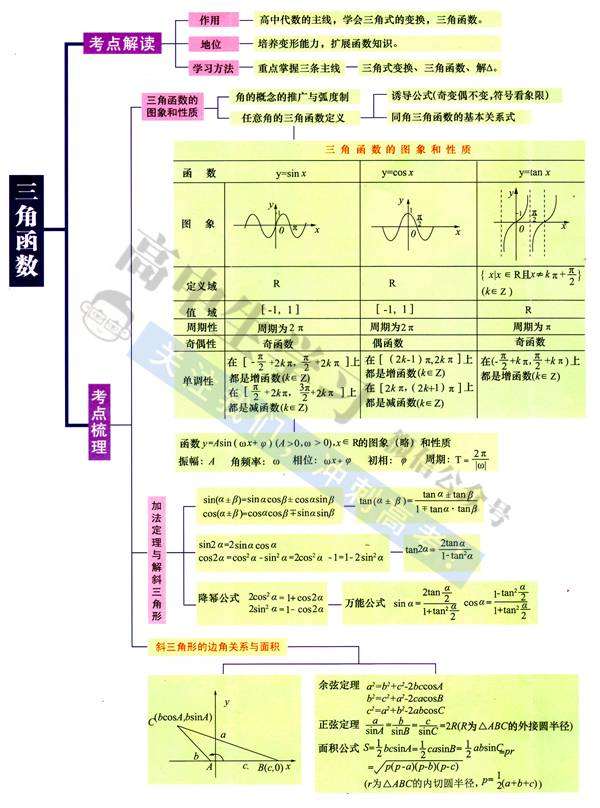 三角函数
考点解读
作用
高中代数的主线，学会三角式的变换，三角函数。
地位
培养变形能力，扩展函数知识。
学习方法
重点掌握三条主线
三角式变换、三角函数、解Δ。
考点梳理
三角函数的
图象和性质
角的概念的推广与弧度制
任意角的三角函数定义
诱导公式(奇变偶不变,符号看象限)
同角三角函数的基本关系式
三角函数的图象和性质
函 数 y=sin x y=cos x y=tan x
图 象
1 0 π x y
1 0 π/2 x y
-1 0 π/2 x y
定义域 R R { x|x∈R且x≠kπ+π/2}
(k∈Z)
值 域 [-1, 1] [-1, 1] R
周期性 周期为2π 周期为2π 周期为π
奇偶性 奇函数 偶函数 奇函数
单调性
在[-π/2+2kπ, π/2+2kπ]上
都是增函数(k∈Z)
在[π/2+2kπ, 3π/2+2kπ]上
都是减函数(k∈Z)
在[(2k-1)π,2kπ]上
都是增函数(k∈Z)
在[2kπ, (2k+1)π]上
都是减函数(k∈Z)
在(-π/2+kπ,π/2+kπ)上
都是增函数(k∈Z)
函数y=Asin(ωx+φ)(A>0,ω>0),x∈R的图象（略）和性质
振幅：A 角频率：ω 相位：ωx+φ 初相：φ 周期：T=2π/|ω|
加法定理与解斜三角形
sin(α±β)=sinαcosβ±cosαsinβ
cos(α±β)=cosαcosβ∓sinαsinβ
tan(α±β)=(tanα±tanβ)/(1∓tanα·tanβ)
sin2α=2sinαcosα
cos2α=cos²α-sin²α=2cos²α-1=1-2sin²α
tan2α=2tanα/(1-tan²α)
降幂公式 2cos²α=1+cos2α
2sin²α=1-cos2α
万能公式 sinα=2tan(α/2)/(1+tan²(α/2)) cosα=(1-tan²(α/2))/(1+tan²(α/2))
斜三角形的边角关系与面积
y
C(bcosA,bsinA)
a
b
A c. B(c,0) x
余弦定理 a²=b²+c²-2bccosA
b²=c²+a²-2cacosB
c²=a²+b²-2abcosC
正弦定理 a/sinA=b/sinB=c/sinC=2R(R为△ABC的外接圆半径)
面积公式 S=1/2bcsinA=1/2casinB=1/2absinC=pr
=√p(p-a)(p-b)(p-c)
(r为△ABC的内切圆半径, p=1/2(a+b+c))
高中生学习
微信公众号
关注我们，冲刺高考！